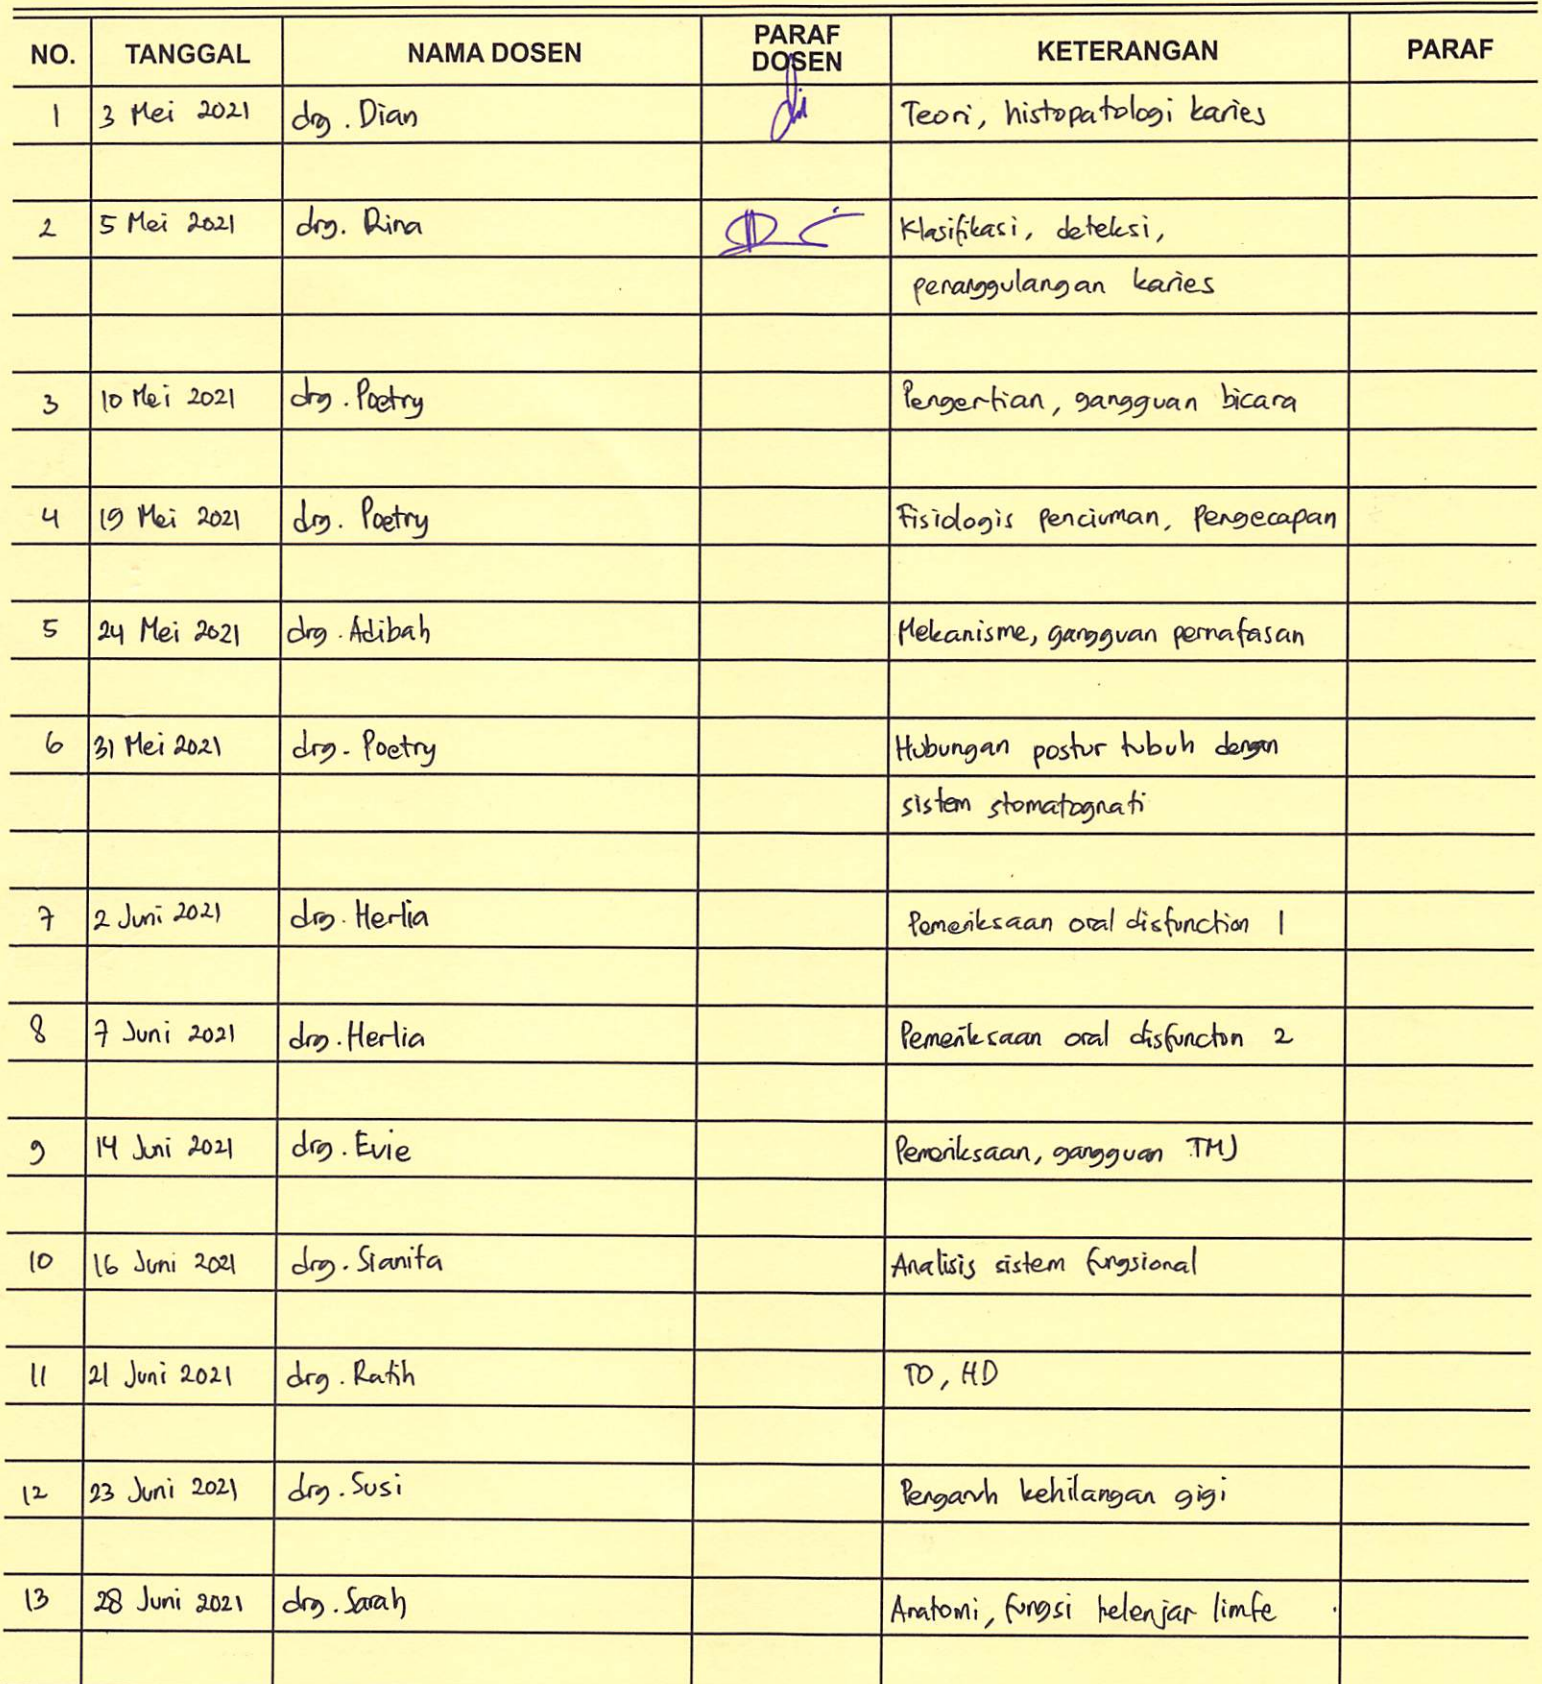 NO. TANGGAL NAMA DOSEN PARAF DOSEN KETERANGAN PARAF
1 3 Mei 2021 drg. Dian Teori, histopatologi karies
2 5 Mei 2021 drg. Rina Klasifikasi, deteksi,
penanggulangan karies
3 10 Mei 2021 drg. Poetry Pengertian, gangguan bicara
4 19 Mei 2021 drg. Poetry Fisiologis penciuman, Pengecapan
5 24 Mei 2021 drg. Adibah Mekanisme, gangguan pernafasan
6 31 Mei 2021 drg. Poetry Hubungan postur tubuh dengan
sistem stomatognati
7 2 Juni 2021 drg. Herlia Pemeriksaan oral disfunction 1
8 7 Juni 2021 drg. Herlia Pemeriksaan oral disfuncton 2
9 14 Juni 2021 drg. Evie Pemeriksaan, gangguan TMJ
10 16 Juni 2021 drg. Sianita Analisis sistem fungsional
11 21 Juni 2021 drg. Ratih TO, HD
12 23 Juni 2021 drg. Susi Pengaruh kehilangan gigi
13 28 Juni 2021 drg. Sarah Anatomi, fungsi kelenjar limfe